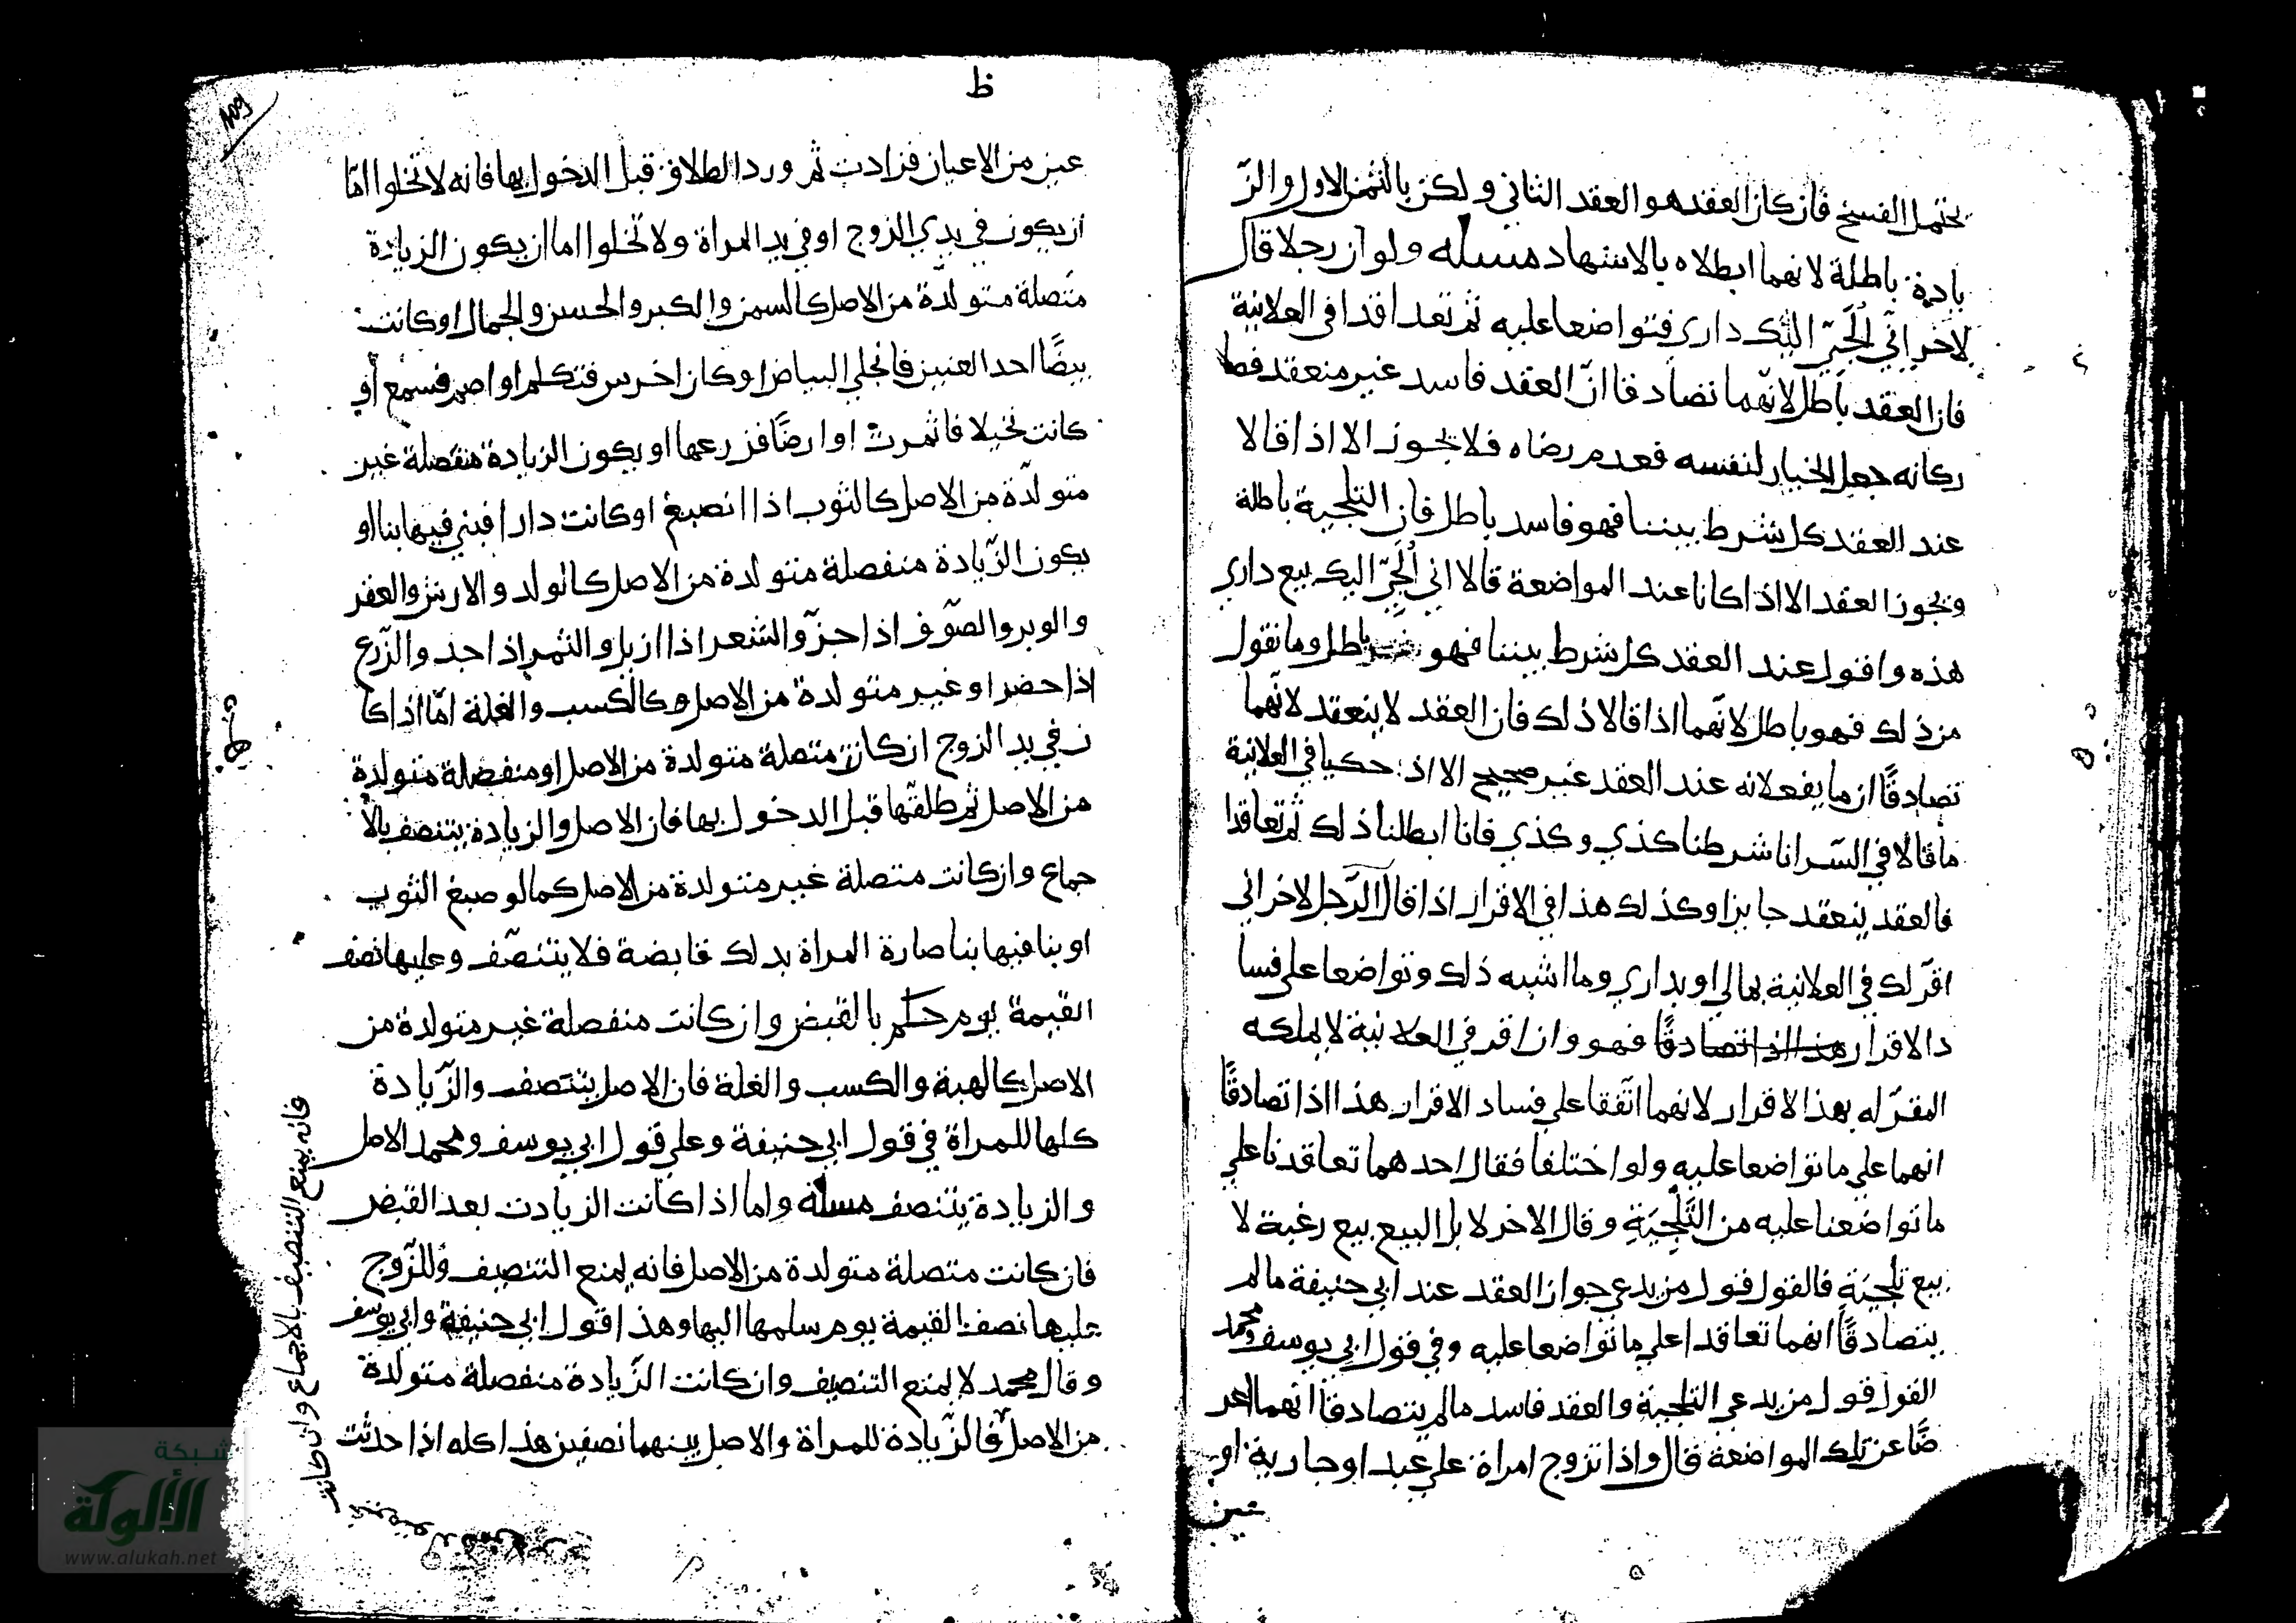 يحتمل الفسخ فان كان العقد هو العقد الثاني ولكن بالثمن الاول والز
يادة باطلة لانهما ابطلاه بالاشهاد مسله ولو ان رجلا قال
لاخر اني الجئ اليك داري فتواضعا عليه ثم تعداقدا في العلانية
فان العقد باطل لانهما تصادقا ان العقد فاسد غير منعقد فصا
ركانه جعل الخيار لنفسه فعدم رضاه فلا يجوز الا اذا قالا
عند العقد كل شرط بيننا فهو فاسد باطل فان التلجية باطلة
ويجوز العقد الا اذا كانا عند المواضعة قالا اني الجئ اليك بيع داري
هذه واقول عند العقد كل شرط بيننا فهو باطل وما نقول
من ذلك فهو باطل لانهما اذا قالا ذلك فان العقد لا ينعقد لانهما
تصادقا ان ما يفعلانه عند العقد غير صحيح الا اذا حكيا في العلانية
ما قالا في السر انا شرطنا كذي وكذي فانا ابطلنا ذلك ثم تعاقدا
فالعقد ينعقد جايزا وكذلك هذا في الاقرار اذا قال الرجل لاخر اني
اقر لك في العلانية بمالي او بداري وما اشبه ذلك وتواضعا على فسا
د الاقرار هذا اذا تصادقا فهو وان اقر في العلانية لا يملكه
المقر له بهذا الاقرار لانهما اتفقا على فساد الاقرار هذا اذا تصادقا
انهما على ما تواضعا عليه ولو اختلفا فقال احدهما تعاقدنا على
ما تواضعنا عليه من التلجية وقال الاخر لا بل البيع بيع رغبة لا
بيع تلجية فالقول قول من يدعي جواز العقد عند ابي حنيفة ما لم
يتصادقا انهما تعاقدا على ما تواضعا عليه وفي قول ابي يوسف ومحمد
القول قول من يدعي التلجية والعقد فاسد ما لم يتصادقا انهما اعر
ضا عن تلك المواضعة قال واذا تزوج امراة على عبد او جارية او
عين
ظ
عين من الاعيان فزادت ثم ورد الطلاق قبل الدخول بها فانه لا تخلوا اما
ان يكون في يدي الزوج او في يد المراة ولا تخلوا اما ان يكون الزيادة
متصلة متولدة من الاصل كالسمن والكبر والحسن والجمال او كانت
بيضا احد العنين فانجلي البياض او كان اخرس فتكلم او اصم فسمع او
كانت نخيلا فاثمرت او ارضا فزرعها او يكون الزيادة متصلة غير
متولدة من الاصل كالثوب اذا انصبغ او كانت دارا فبني فيها بنا او
يكون الزيادة منفصلة متولدة من الاصل كالولد والارش والعقر
والوبر والصوف اذا جز والشعر اذا ازيل والثمر اذا جد والزرع
اذا حضر او غير متولدة من الاصل وكالكسب والغلة اما اذا كا
ن في يد الزوج ان كانت متصلة متولدة من الاصل او منفصلة متولدة
من الاصل ثم طلقها قبل الدخول بها فان الاصل والزيادة يتنصف بالا
جماع وان كانت متصلة غير متولدة من الاصل كما لو صبغ الثوب
او بنا فيها بنا صارة المراة بدلك قابضة فلا يتنصف وعليها نصف
القيمة يوم حكم بالقبض وان كانت منفصلة غير متولدة من
الاصل كالهبة والكسب والغلة فان الاصل يتنصف والزيادة
كلها للمراة في قول ابي حنيفة وعلى قول ابي يوسف ومحمد الاصل
والزيادة يتنصف مسلة واما اذا كانت الزيادت بعد القبض
فان كانت متصلة متولدة من الاصل فانه يمنع التنصيف وللزوج
عليها نصف القيمة يوم سلمها اليها وهذا قول ابي حنيفة وابي يوسف
وقال محمد لا يمنع التنصيف وان كانت الزيادة منفصلة متولدة
من الاصل فالزيادة للمراة والاصل بينهما نصفين هذا كله اذا حدثت
فانه يمنع التنصيف بالاجماع وان كانت
شبكة
الألوكة
www.alukah.net